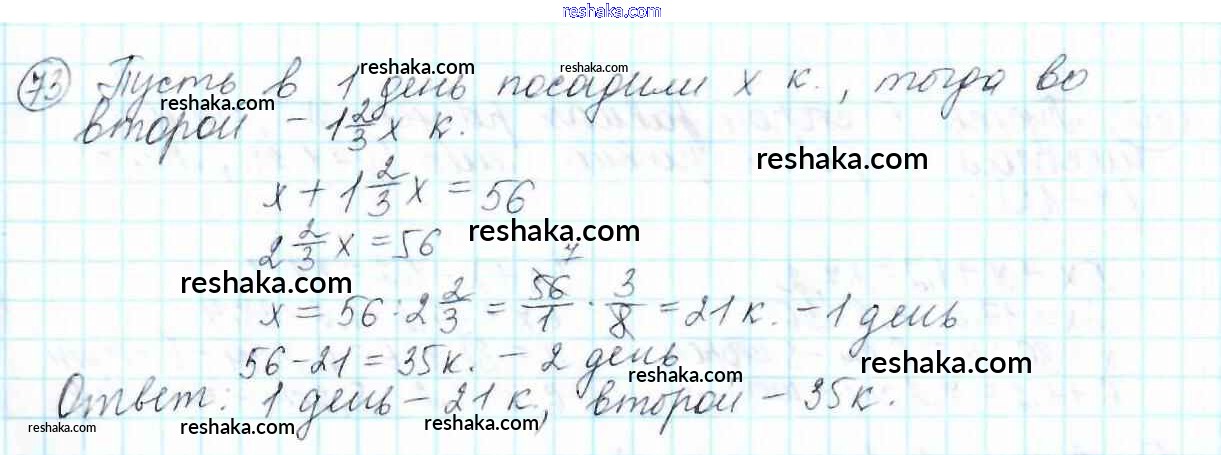 reshaka.com
73 Пусть в 1 день посадили х к., тогда во
reshaka.com
reshaka.com
reshaka.com
второй – 1 2/3 х к.
reshaka.com
х + 1 2/3 х = 56
2 2/3 х = 56
reshaka.com
reshaka.com
х = 56 : 2 2/3 = 56/1 · 3/8 = 21 к. – 1 день
7
56 – 21 = 35к. – 2 день
reshaka.com
reshaka.com
Ответ: 1 день – 21 к, второй – 35к.
reshaka.com
reshaka.com
reshaka.com